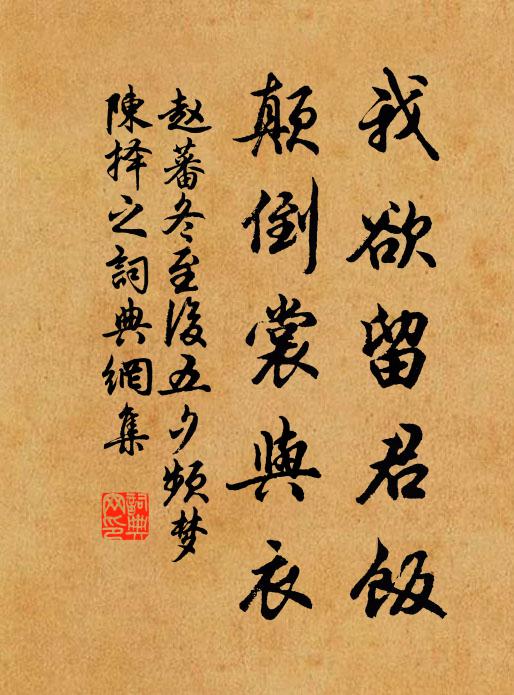 我欲留君飯
顛倒裳與衣
赵蕃冬至後五夕頻梦
陳择之詞典網集
詞典网印